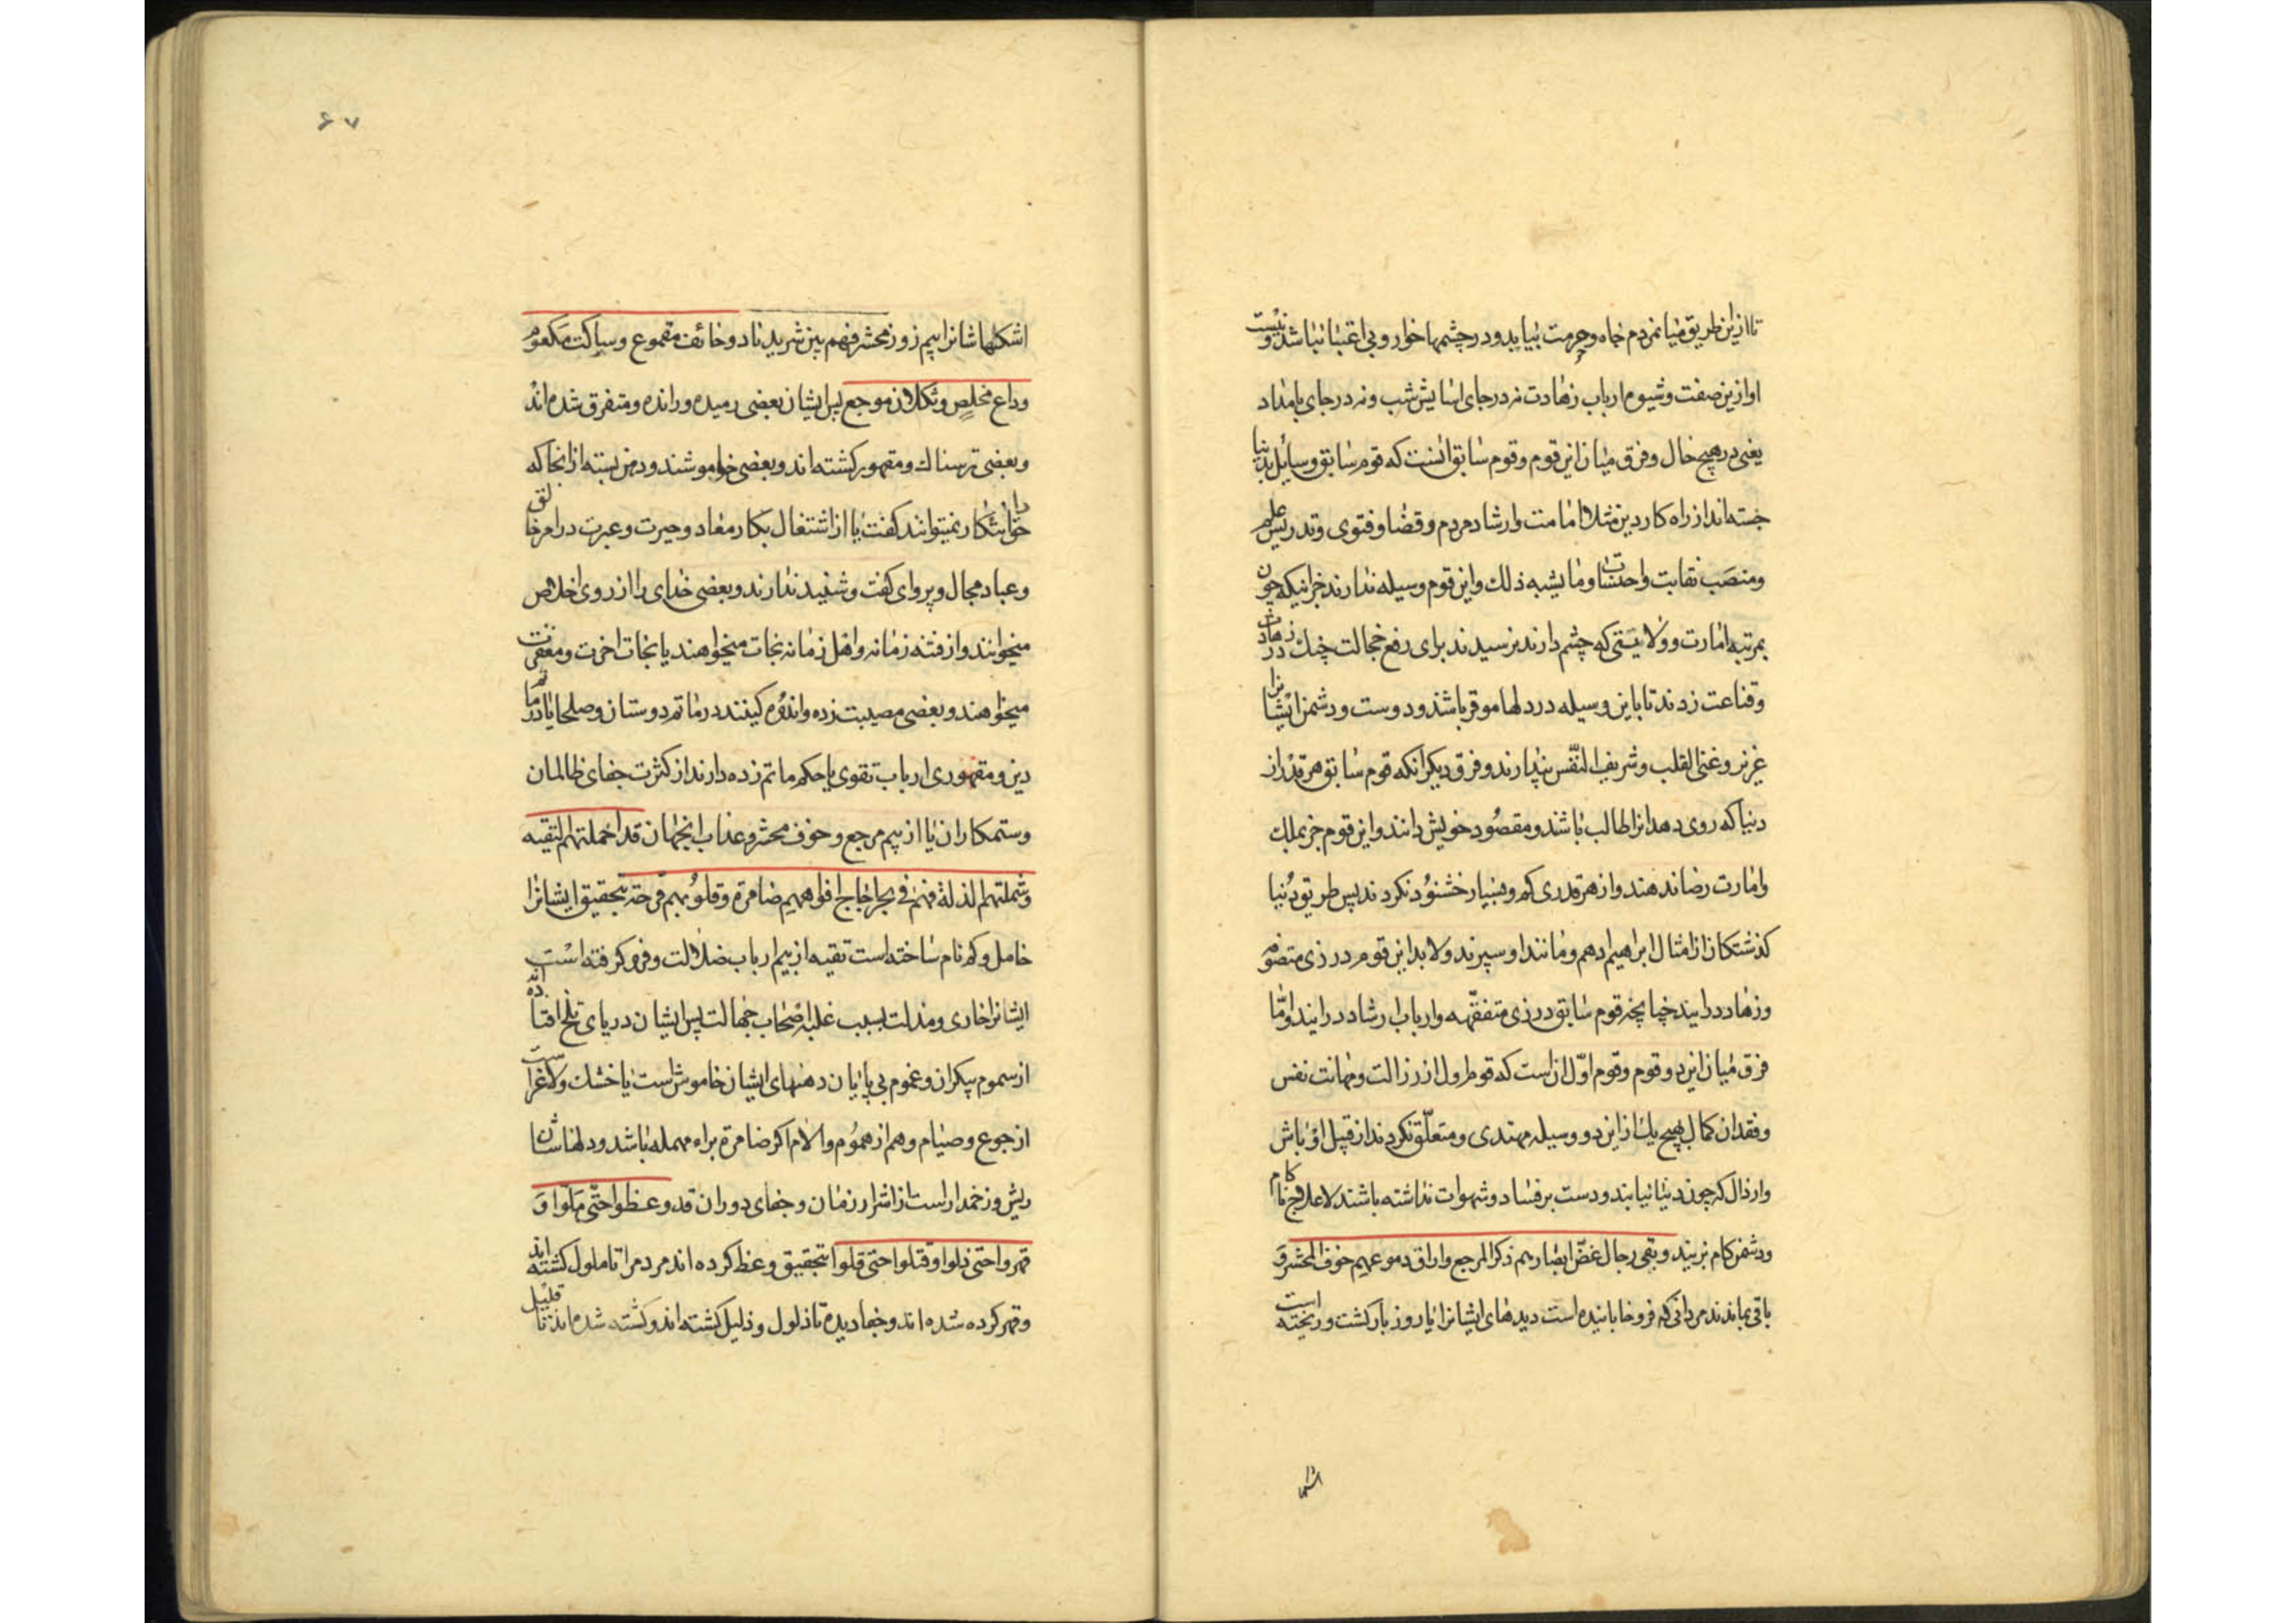 تا ازین طریق میان مردم جاه و حرمت بیابد و در چشمها خوار و بی اعتبار نباشد و نیست
او ازین صفت و شیوم ارباب زهادت نه در جای اسایش شب و نه در جای بامداد
یعنی در هیچ حال و فرق میان این قوم و قوم سابق انست که قوم سابق وسائل بدنیا
جسته اند از راه کار دین مثلا امامت و ارشاد مردم و قضا و فتوی و تدریس علم
و منصب نقابت و احتساب و ما یشبه ذلك و این قوم وسیله ندارند جز اینکه چون
بمرتبه امارت و ولایتی که چشم دارند نرسیدند برای رفع خجالت چنك در زهادت
و قناعت زدند تا باین وسیله در دلها موقر باشند و دوست و دشمن ایشانرا
عزیز و غنی القلب و شریف النّفس پندارند و فرق دیکر انکه قوم سابق هر قدر از
دنیا که روی دهد انرا طالب باشند و مقصود خویش دانند و این قوم جز بملك
و امارت رضا ندهند و از هر قدری کم و بسیار خشنود نکردند پس طریق دنیا
کذشتکان از امثال ابراهیم ادهم و مانند او سپرند و لابد این قوم در زی متصوفه
و زهاد درایند چنانچه قوم سابق در زی متفقّهه و ارباب ارشاد درایند و امّا
فرق میان این دو قوم و قوم اوّل ان است که قوم اول از رزالت و مهانت نفس
و فقدان کمال بهیچ یك از این دو وسیله مهتدی و متعلّق نکردند از قبیل اوباش
و ارذال که چون دنیا نیابند و دست بر فساد و شهوات نداشته باشند لا علاج ناکام
و دشمن کام نزیند و بقی رجال غضّ ابصارهم ذکر المرجع و اراق دموعهم خوف المحشر ف
باقی بماندند مردانی که فرو خابانیده است دیدهای ایشانرا یاد روز بازکشت و ریخته است
۶۷
اشکهاشانرا بیم روز محشر فهم بین شرید ناد و خائف مقموع و ساکت مکعوم
وداع مخلص و ثکلان موجع پس ایشان بعضی رمیده و رانده و متفرق شده اند
و بعضی ترسناك و مقهور کشته اند و بعضی خاموشند و دهن بسته از انجا که
حق اشکار نمیتوانند کفت یا از اشتغال بکار معاد و حیرت و عبرت در امر خالق
و عباد مجال و پروای کفت و شنید ندارند و بعضی خدای را از روی اخلاص
میخوانند و از فتنه زمانه و اهل زمانه نجات میخواهند یا نجات اخرت و مغفرت
میخواهند و بعضی مصیبت زده و اندوه کینند در ماتم دوستان و صلحا یا در ماتم
دین و مقهوری ارباب تقوی یا حکم ماتم زده دارند از کثرت جفای ظالمان
و ستمکاران یا از بیم مرجع و خوف محشر و عذاب انجهان قد اخملتهم التقیه
و شملتهم الذلة فهم فی بحر اجاج افواههم ضامرة و قلوبهم قرحة بتحقیق ایشانرا
خامل و کم نام ساخته است تقیه از بیم ارباب ضلالت و فرو کرفته است
ایشانرا خاری و مذلت بسبب غلبهٔ اصحاب جهالت پس ایشان در دریای تلخ افتاده اند
از سموم بیکران و غموم بی پایان دهنهای ایشان خاموش است یا خشك و لاغر است
از جوع و صیام و هم از هموم و الام اکر ضامرة براء مهمله باشد و دلهاشان
ریش و زخمدار است از اشرار زمان و جفای دوران قد وعظوا حتّی ملّوا و
قهروا حتی ذلوا و قتلوا حتی قلوا بتحقیق وعظ کرده اند مردم را تا ملول کشته اند
و قهر کرده شده اند و جفا دیده تا ذلول و ذلیل کشته اند و کشته شده اند تا قلیل